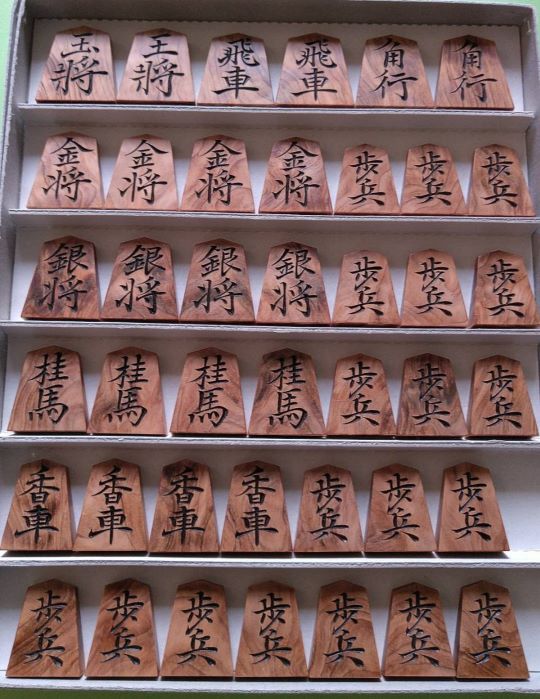 玉将 王将 飛車 飛車 角行 角行
金将 金将 金将 金将 歩兵 歩兵 歩兵
銀将 銀将 銀将 銀将 歩兵 歩兵 歩兵
桂馬 桂馬 桂馬 桂馬 歩兵 歩兵 歩兵
香車 香車 香車 香車 歩兵 歩兵 歩兵
歩兵 歩兵 歩兵 歩兵 歩兵 歩兵 歩兵